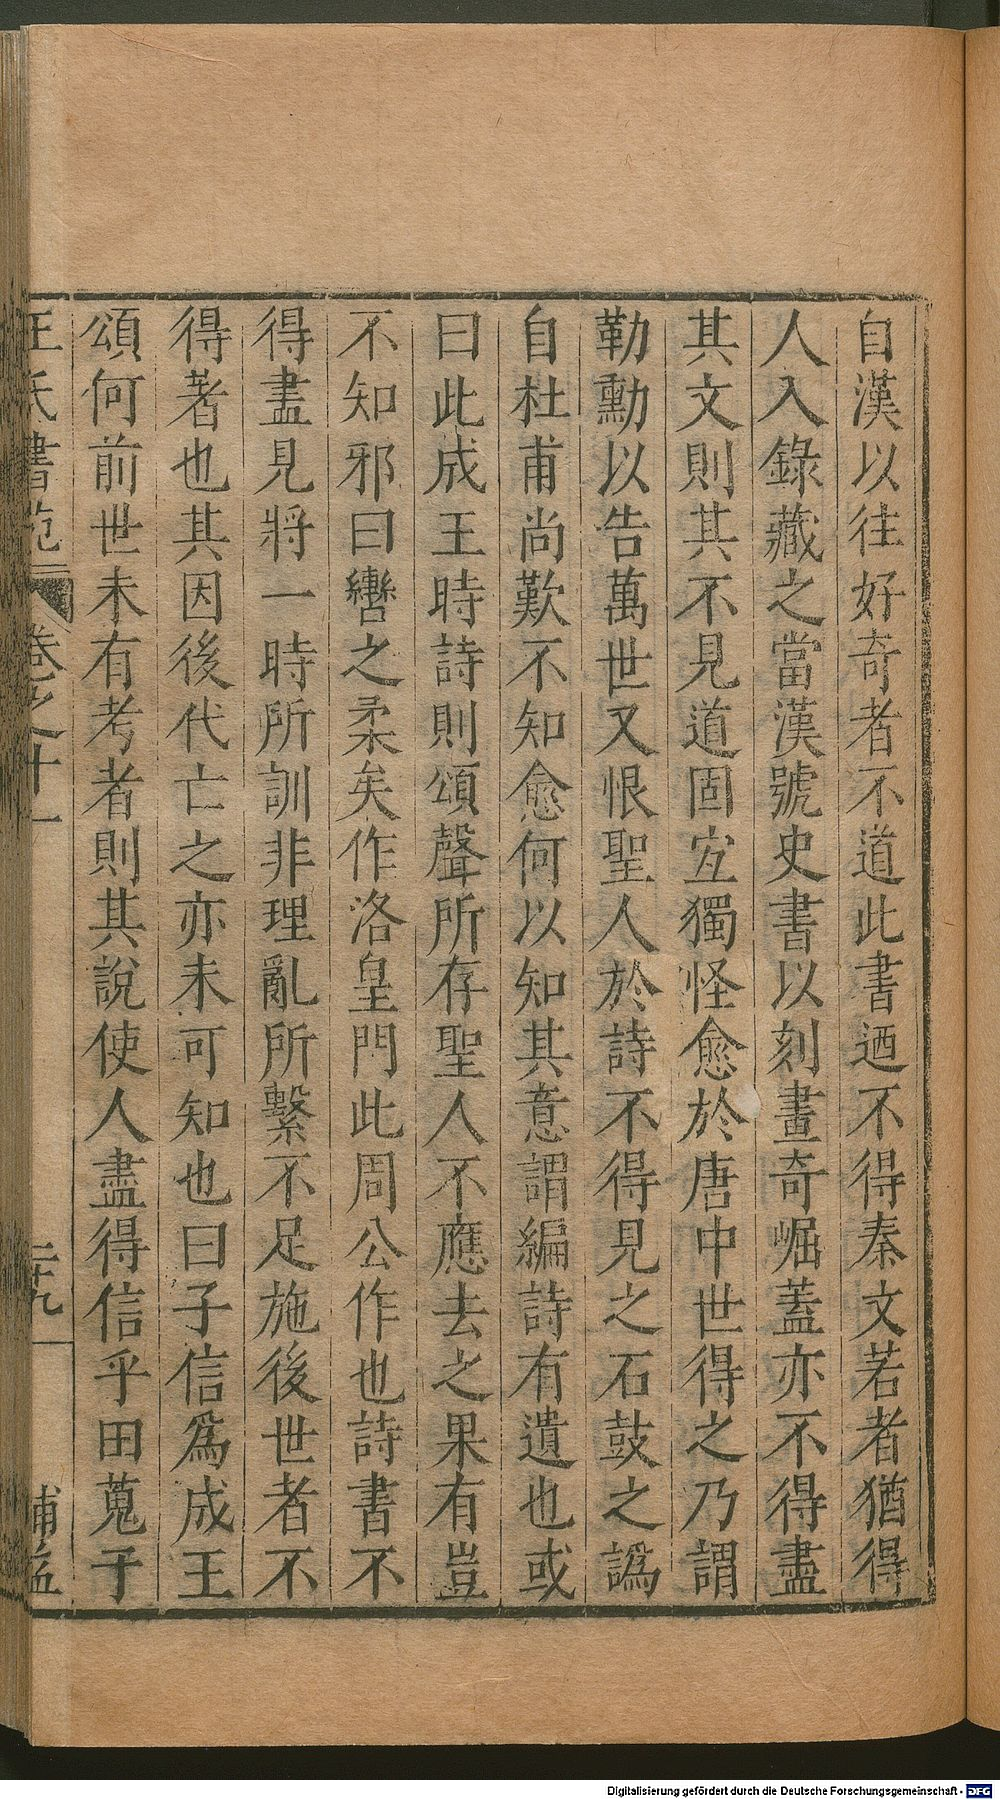 自漢以徃好奇者不道此書迺不得秦文若者猶得
人入錄藏之當漢號史書以刻畫奇崛蓋亦不得盡
其文則其不見道固宐獨怪愈於唐中世得之乃謂
勒勳以告萬世又恨聖人於詩不得見之石鼓之譌
自杜甫尚歎不知愈何以知其意謂編詩有遺也或
曰此成王時詩則頌聲所存聖人不應去之果有豈
不知邪曰轡之柔矣作洛皇門此周公作也詩書不
得盡見將一時所訓非理亂所繫不足施後世者不
得著也其因後代亡之亦未可知也曰子信爲成王
頌何前世未有考者則其說使人盡得信乎田蒐于
王氏書苑 卷之十一 二十九 補益
Digitalisierung gefördert durch die Deutsche Forschungsgemeinschaft - DFG